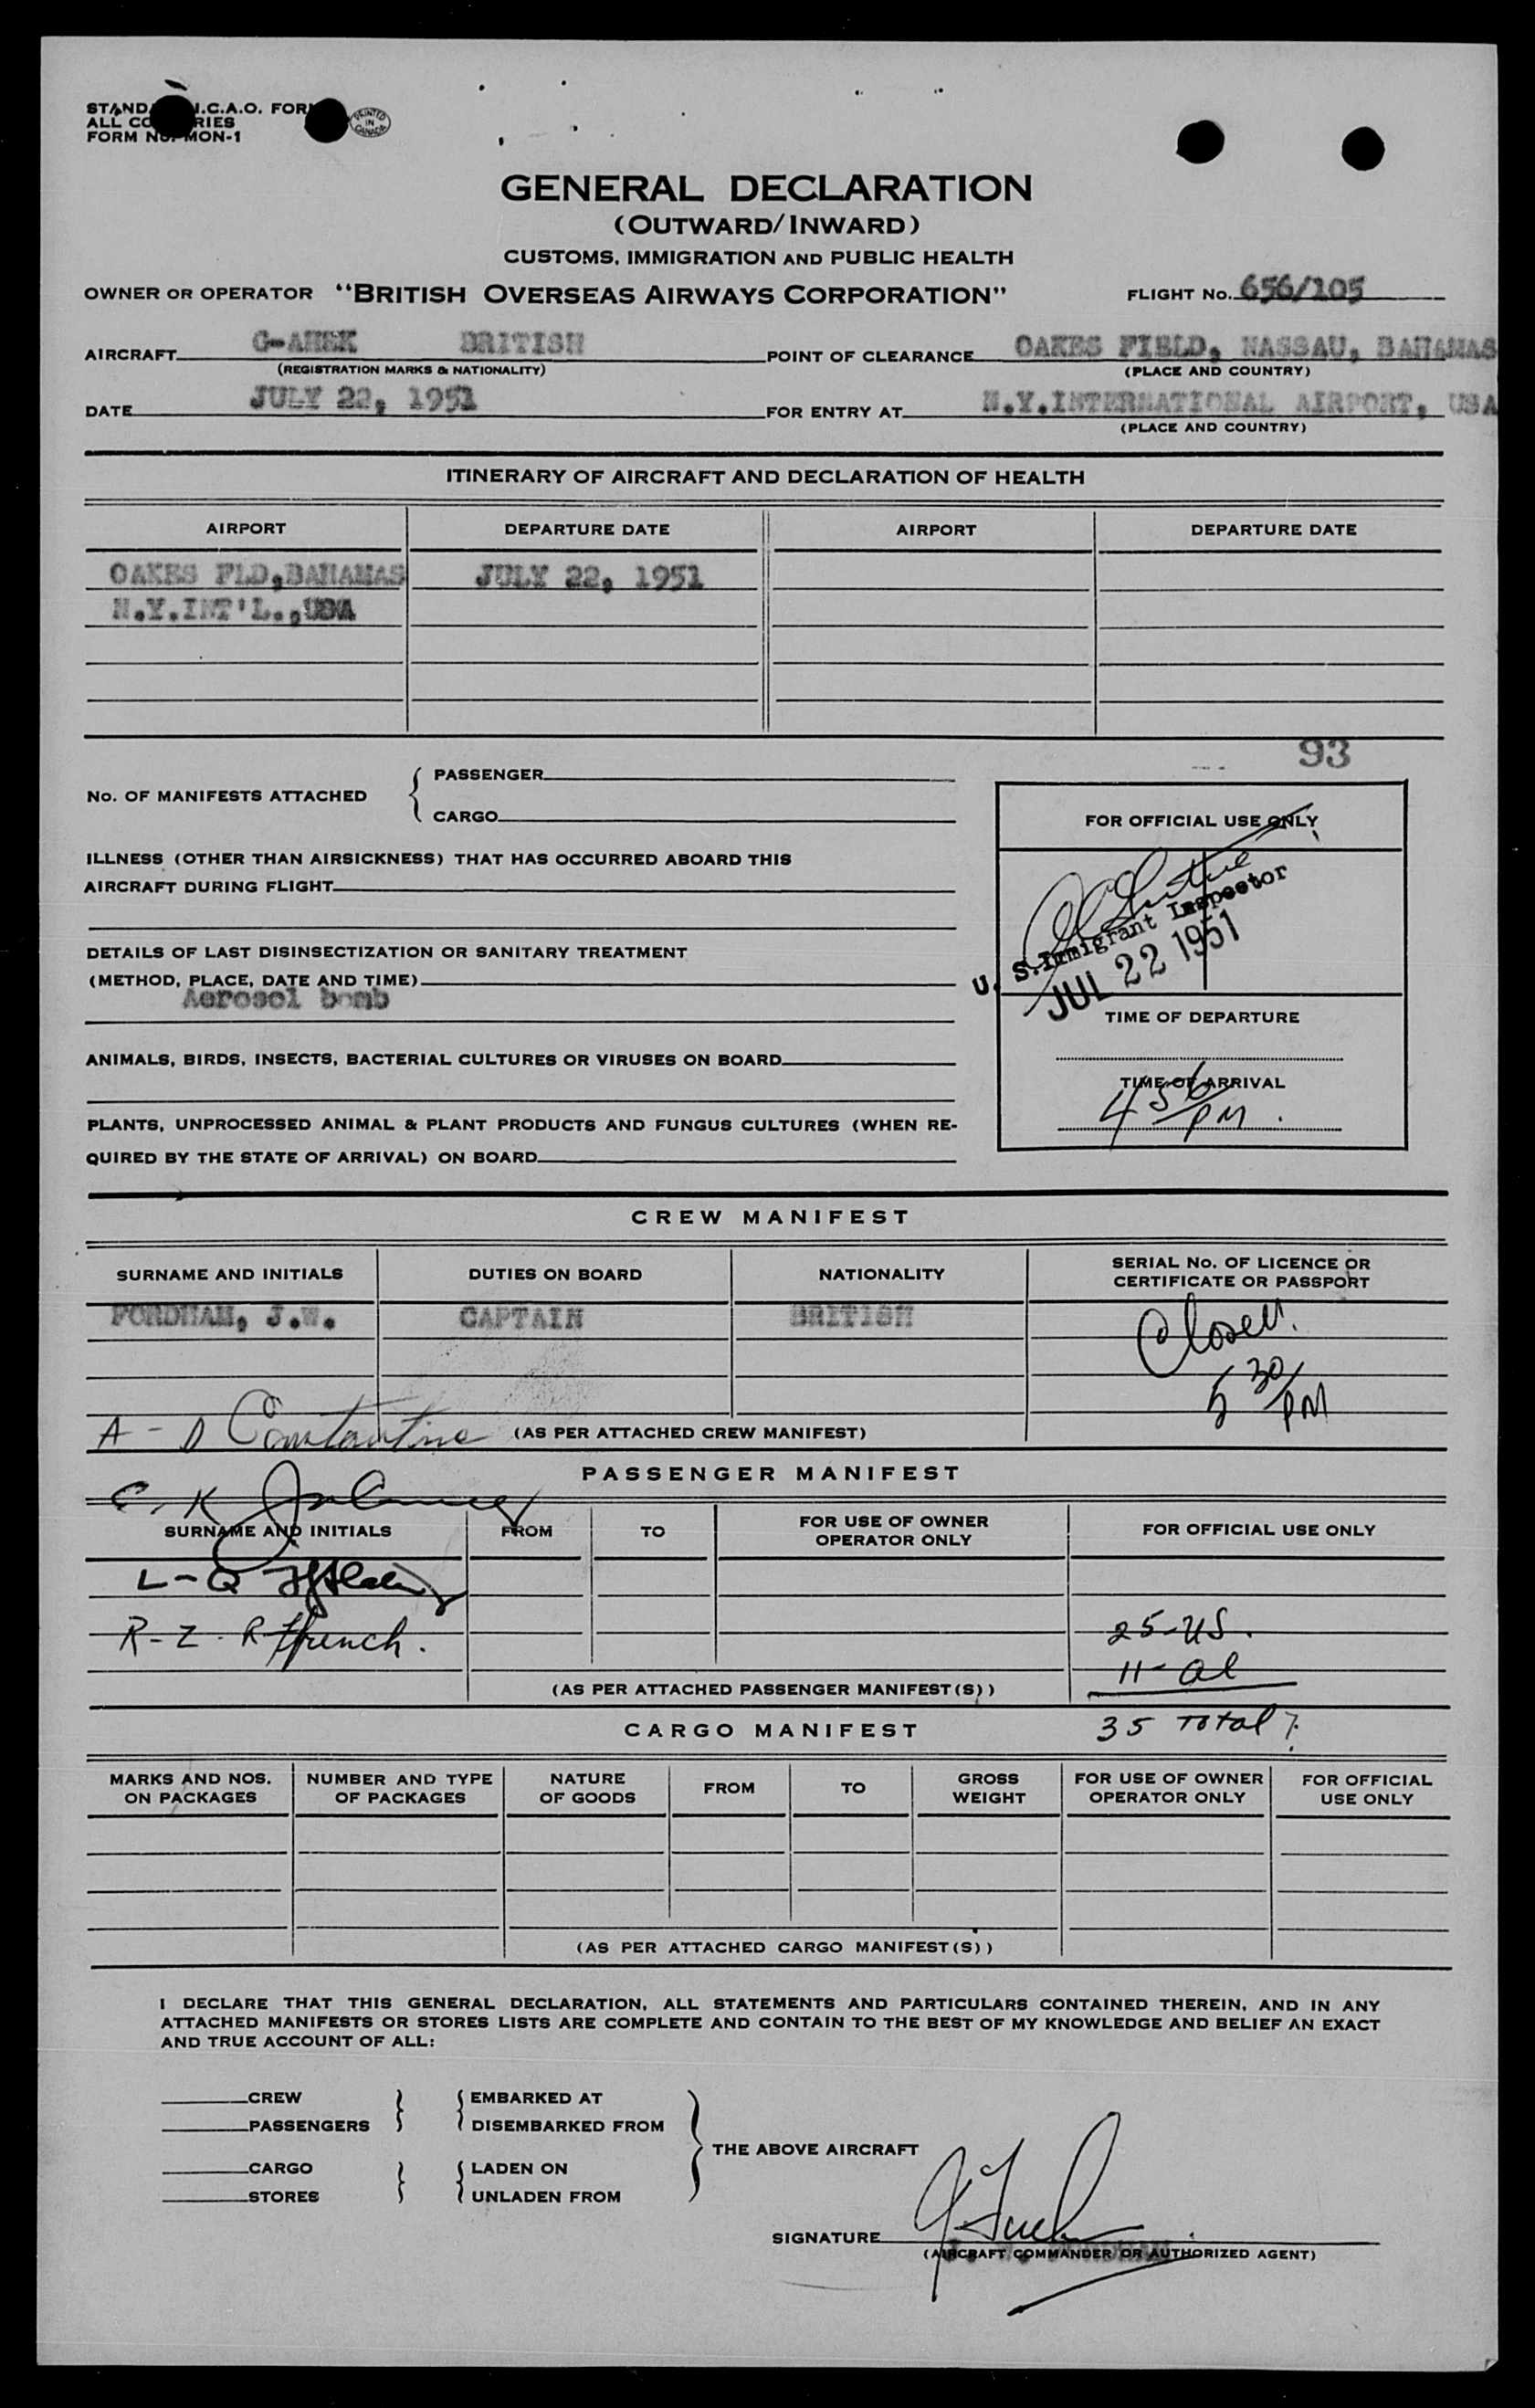 STAND I.C.A.O. FOR
ALL CO RIES
FORM No. MON-1
PRINTED IN CANADA
GENERAL DECLARATION
(OUTWARD/INWARD)
CUSTOMS, IMMIGRATION AND PUBLIC HEALTH
OWNER OR OPERATOR "BRITISH OVERSEAS AIRWAYS CORPORATION" FLIGHT No. 656/105
AIRCRAFT G-AHEK BRITISH POINT OF CLEARANCE OAKES FIELD, NASSAU, BAHAMAS
(REGISTRATION MARKS & NATIONALITY) (PLACE AND COUNTRY)
DATE JULY 22, 1951 FOR ENTRY AT N.Y.INTERNATIONAL AIRPORT, USA
(PLACE AND COUNTRY)
ITINERARY OF AIRCRAFT AND DECLARATION OF HEALTH
AIRPORT DEPARTURE DATE AIRPORT DEPARTURE DATE
OAKES FLD,BAHAMAS JULY 22, 1951
N.Y.INT'L.,USA
93
No. OF MANIFESTS ATTACHED { PASSENGER
CARGO
FOR OFFICIAL USE ONLY
ILLNESS (OTHER THAN AIRSICKNESS) THAT HAS OCCURRED ABOARD THIS
AIRCRAFT DURING FLIGHT
U. S. Immigrant Inspector
JUL 22 1951
DETAILS OF LAST DISINSECTIZATION OR SANITARY TREATMENT
(METHOD, PLACE, DATE AND TIME)
Aerosol bomb
TIME OF DEPARTURE
ANIMALS, BIRDS, INSECTS, BACTERIAL CULTURES OR VIRUSES ON BOARD
TIME OF ARRIVAL
456 PM
PLANTS, UNPROCESSED ANIMAL & PLANT PRODUCTS AND FUNGUS CULTURES (WHEN RE-
QUIRED BY THE STATE OF ARRIVAL) ON BOARD
CREW MANIFEST
SURNAME AND INITIALS DUTIES ON BOARD NATIONALITY SERIAL No. OF LICENCE OR
CERTIFICATE OR PASSPORT
FORDHAM, J.W. CAPTAIN BRITISH
5 30 PM
A - D Constantine (AS PER ATTACHED CREW MANIFEST)
PASSENGER MANIFEST
E - K
SURNAME AND INITIALS FROM TO FOR USE OF OWNER
OPERATOR ONLY FOR OFFICIAL USE ONLY
L-Q
R-Z - R
25-US.
11- al
(AS PER ATTACHED PASSENGER MANIFEST(S))
35 Total
CARGO MANIFEST
MARKS AND NOS.
ON PACKAGES NUMBER AND TYPE
OF PACKAGES NATURE
OF GOODS FROM TO GROSS
WEIGHT FOR USE OF OWNER
OPERATOR ONLY FOR OFFICIAL
USE ONLY
(AS PER ATTACHED CARGO MANIFEST(S))
I DECLARE THAT THIS GENERAL DECLARATION, ALL STATEMENTS AND PARTICULARS CONTAINED THEREIN, AND IN ANY
ATTACHED MANIFESTS OR STORES LISTS ARE COMPLETE AND CONTAIN TO THE BEST OF MY KNOWLEDGE AND BELIEF AN EXACT
AND TRUE ACCOUNT OF ALL:
CREW } { EMBARKED AT
PASSENGERS DISEMBARKED FROM
THE ABOVE AIRCRAFT
CARGO } { LADEN ON
STORES UNLADEN FROM
SIGNATURE
(AIRCRAFT COMMANDER OR AUTHORIZED AGENT)